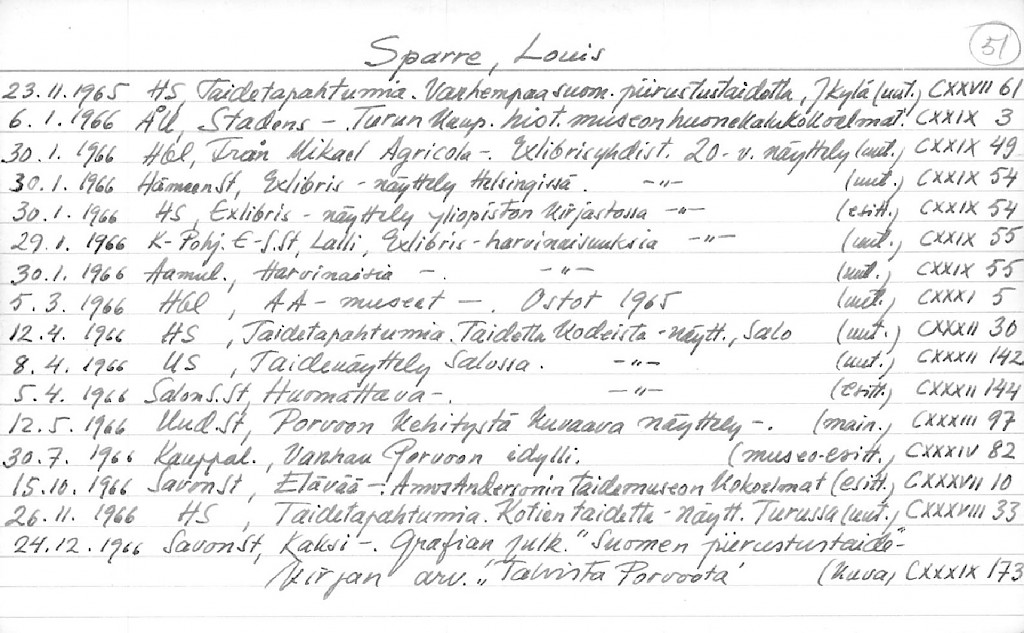 51
Sparre, Louis
23.11.1965 HS, Taidetapahtumia. Vanhempaa suom. piirustustaidetta, Jkylä (uut.) CXXVII 61
6.1.1966 ÅU, Stadens -. Turun kaup. hist. museon huonekalukokoelmat. CXXIX 3
30.1.1966 Hbl, Från Mikael Agricola -. Exlibrisyhdist. 20-v. näyttely (uut.) CXXIX 49
30.1.1966 HämeenSt, Exlibris - näyttely Helsingissä. -"- (uut.) CXXIX 54
30.1.1966 HS, Exlibris - näyttely yliopiston kirjastossa -"- (esitt.) CXXIX 54
29.1.1966 K-Pohj. E-S.St, Lalli, Exlibris-harvinaisuuksia -"- (uut.) CXXIX 55
30.1.1966 Aamul., Harvinaisia -. -"- (uut.) CXXIX 55
5.3.1966 Hbl, AA-museet -. Ostot 1965 (uut.) CXXXI 5
12.4.1966 HS, Taidetapahtumia. Taidetta kodeista-näytt., Salo (uut.) CXXXII 30
8.4.1966 US, Taidenäyttely Salossa. -"- (uut.) CXXXII 142
5.4.1966 SalonS.St, Huomattava -. -"- (esitt.) CXXXII 144
12.5.1966 Uud.St, Porvoon kehitystä kuvaava näyttely -. (main.) CXXXIII 97
30.7.1966 Kauppal., Vanhan Porvoon idylli. (museo-esitt.) CXXXIV 82
15.10.1966 SavonSt, Elävää -. Amos Andersonin taidemuseon kokoelmat (esitt.) CXXXVII 10
26.11.1966 HS, Taidetapahtumia. Kotien taidetta - näytt. Turussa (uut.) CXXXVIII 33
24.12.1966 SavonSt, Kaksi -. Grafian julk. "Suomen piirustustaide"-
kirjan arv. "Talvista Porvoota" (kuva) CXXXIX 173